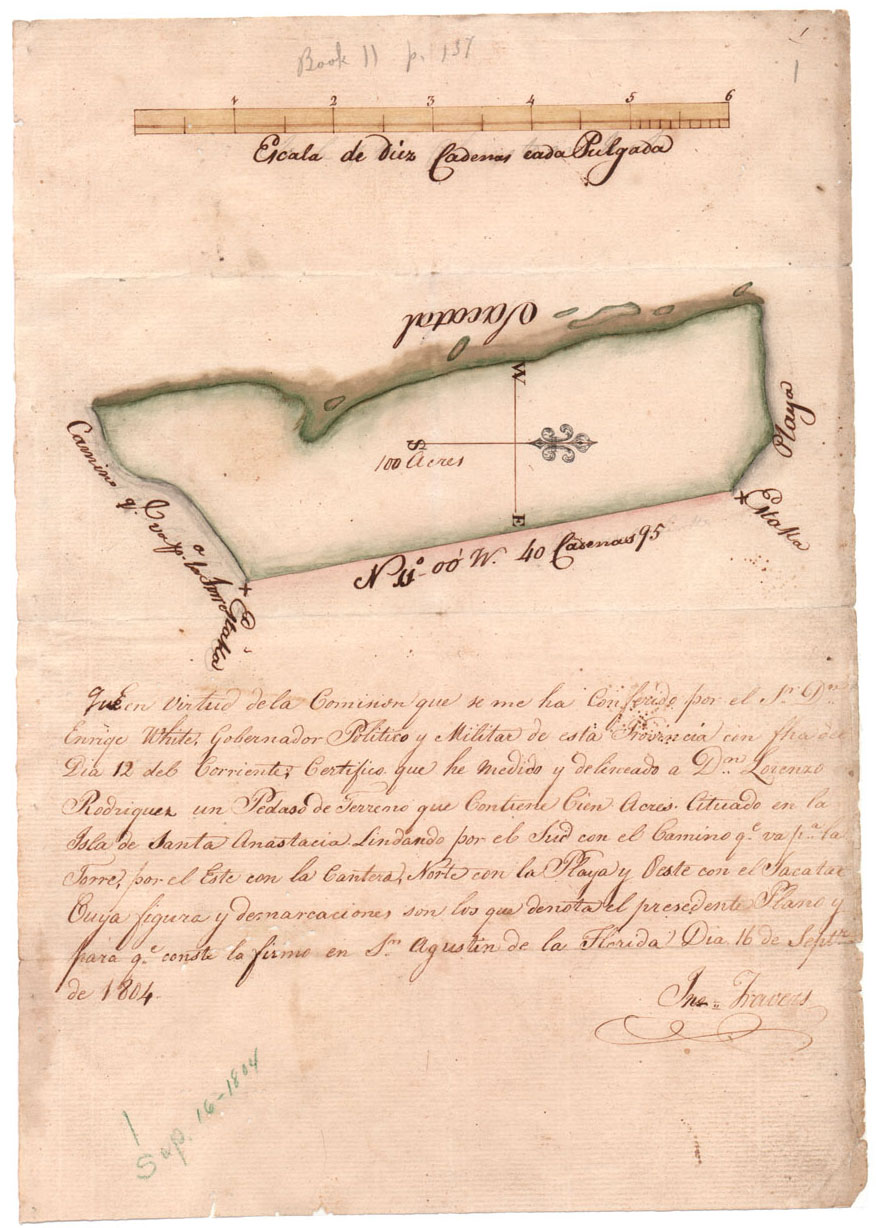 Book 11 p. 137
1
1
1 2 3 4 5 6
Escala de Diez Cadenas cada Pulgada
Sacatal
W
S
100 Acres
E
Playa
Estaka
N 11°-00' W. 40 Cadenas 95
Camino q.e va p.a la
Estaka
Que en virtud de la Comision que se me ha Conferido por el S.r D.n
Enrige White, Gobernador Politico y Militar de esta Provincia con fha del
Dia 12 del Corriente; Certifico que he medido y delineado a D.n Lorenzo
Rodriguez un Pedaso de Terreno que Contiene Cien Acres. Cituado en la
Isla de Santa Anastacia. Lindando por el Sud con el Camino q.e va p.a la
Torre, por el Este con la Cantera, Norte con la Playa y Oeste con el Sacatal
Cuya figura y demarcaciones son los que denota el presedente Plano y
para q.e conste la firmo en S.n Agustin de la Florida Dia 16 de Sept.re
de 1804.
Jno. Travers
Sep. 16-1804